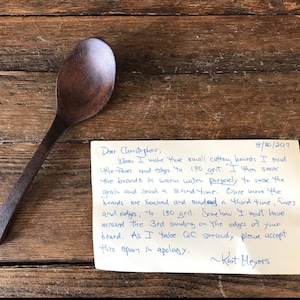 8/30/2017
Dear Christopher,
When I make these small cotton boards I sand
the faces and edges to 180 grit. I then soak
the boards in warm water purposely to raise the
grain and sand a second time. Once more the
boards are and sanded a third time, faces
and edges, to 180 grit. Somehow I must have
missed the 3rd sanding on the edges of your
board. As I take QC seriously please accept
this spoon in apology.
~Kurt Meyers